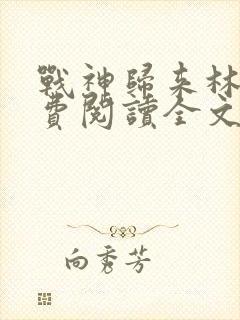 戰神歸來林
費閱讀全文
向秀芳